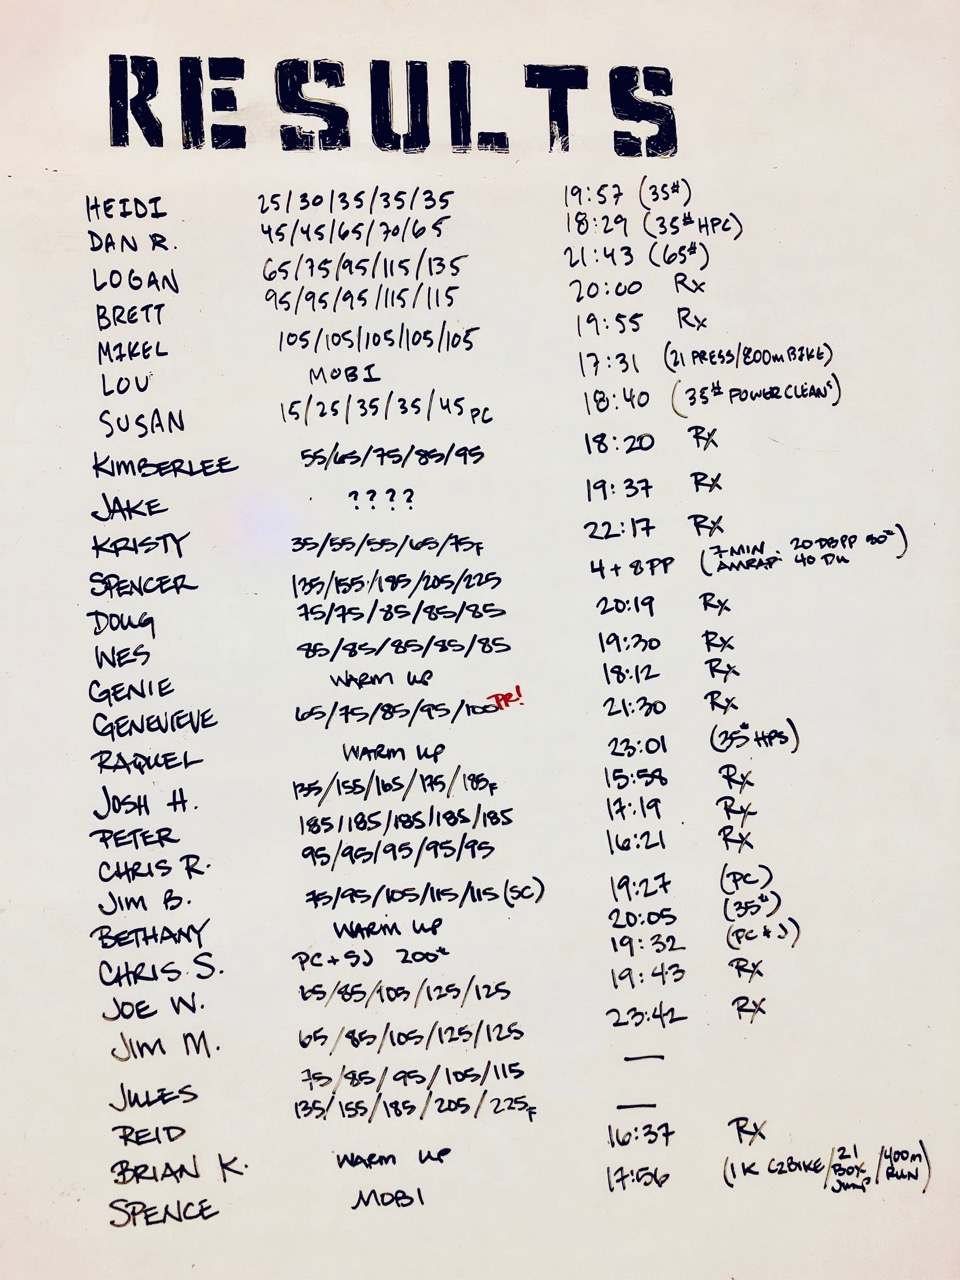 RESULTS
HEIDI 25/30/35/35/35 19:57 (35#)
DAN R. 45/45/65/70/65 18:29 (35# HPC)
LOGAN 65/75/95/115/135 21:43 (65#)
BRETT 95/95/95/115/115 20:00 Rx
MIKEL 105/105/105/105/105 19:55 Rx
LOU MOBI 17:31 (21 PRESS/800m BIKE)
SUSAN 15/25/35/35/45 PC 18:40 (35# POWER CLEANS)
KIMBERLEE 55/65/75/85/95 18:20 Rx
JAKE ???? 19:37 Rx
KRISTY 35/55/55/65/75F 22:17 Rx
SPENCER 135/155/185/205/225 4+8PP (7 MIN AMRAP: 20 DBPP 50# 40 DU)
DOUG 75/75/85/85/85 20:19 Rx
WES 85/85/85/85/85 19:30 Rx
GENIE WARM UP 18:12 Rx
GENEVIEVE 65/75/85/95/100 PR! 21:30 Rx
RAQUEL WARM UP 23:01 (35# HPS)
JOSH H. 135/155/165/175/185F 15:58 Rx
PETER 185/185/185/185/185 17:19 Rx
CHRIS R. 95/95/95/95/95 16:21 Rx
JIM B. 75/95/105/115/115 (SC) 19:27 (PC)
BETHANY WARM UP 20:05 (35#)
CHRIS S. PC+SJ 200# 19:32 (PC+J)
JOE W. 65/85/105/125/125 19:43 Rx
JIM M. 65/85/105/125/125 23:42 Rx
JULES 75/85/95/105/115 —
REID 135/155/185/205/225F —
BRIAN K. WARM UP 16:37 Rx
SPENCE MOBI 17:56 (1K C2BIKE/21 BOX JUMP/400m RUN)